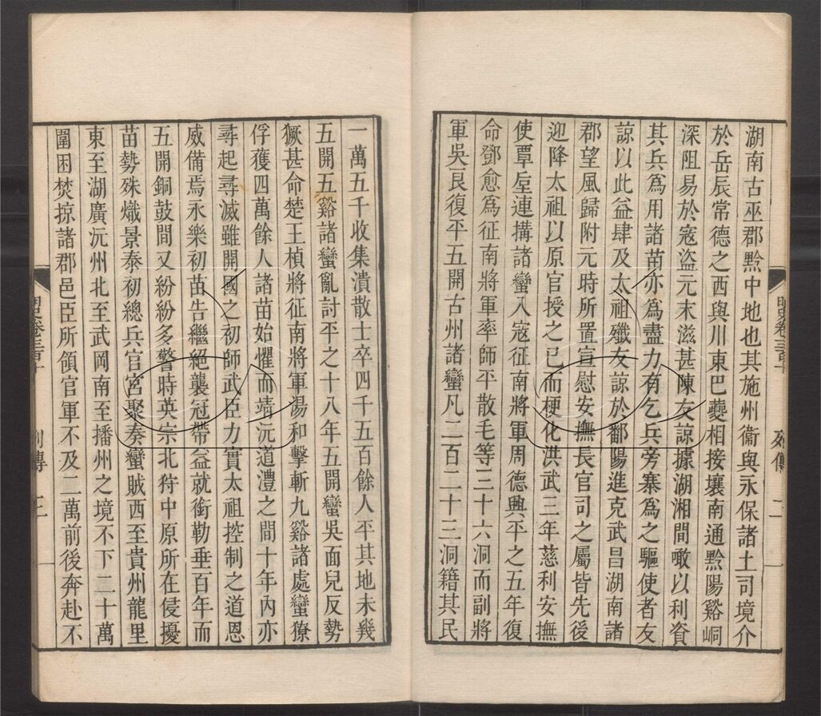 湖南古巫郡黔中地也其施州衞與永保諸土司境介
於岳辰常德之西與川東巴夔相接壤南通黔陽谿峒
深阻易於寇盜元末滋甚陳友諒據湖湘間噉以利資
其兵爲用諸苗亦爲盡力有乞兵旁寨爲之驅使者友
諒以此益肆及太祖殲友諒於鄱陽進克武昌湖南諸
郡望風歸附元時所置宣慰安撫長官司之屬皆先後
迎降太祖以原官授之已而梗化洪武三年慈利安撫
使覃垕連搆諸蠻入寇征南將軍周德興平之五年復
命鄧愈爲征南將軍率師平散毛等三十六洞而副將
軍吳良復平五開古州諸蠻凡二百二十三洞籍其民
列傳 二
一萬五千收集潰散士卒四千五百餘人平其地未幾
五開五谿諸蠻亂討平之十八年五開蠻吳面兒反勢
獗甚命楚王楨將征南將軍湯和擊斬九谿諸處蠻獠
俘獲四萬餘人諸苗始懼而靖沅道澧之間十年內亦
尋起尋滅雖開國之初師武臣力實太祖控制之道恩
威備焉永樂初苗告繼絕襲冠帶益就銜勒垂百年而
五開銅鼓間又紛紛多警時英宗北狩中原所在侵擾
苗勢殊熾景泰初總兵官宮聚奏蠻賊西至貴州龍里
東至湖廣沅州北至武岡南至播州之境不下二十萬
圍困焚掠諸郡邑臣所領官軍不及二萬前後奔赴不